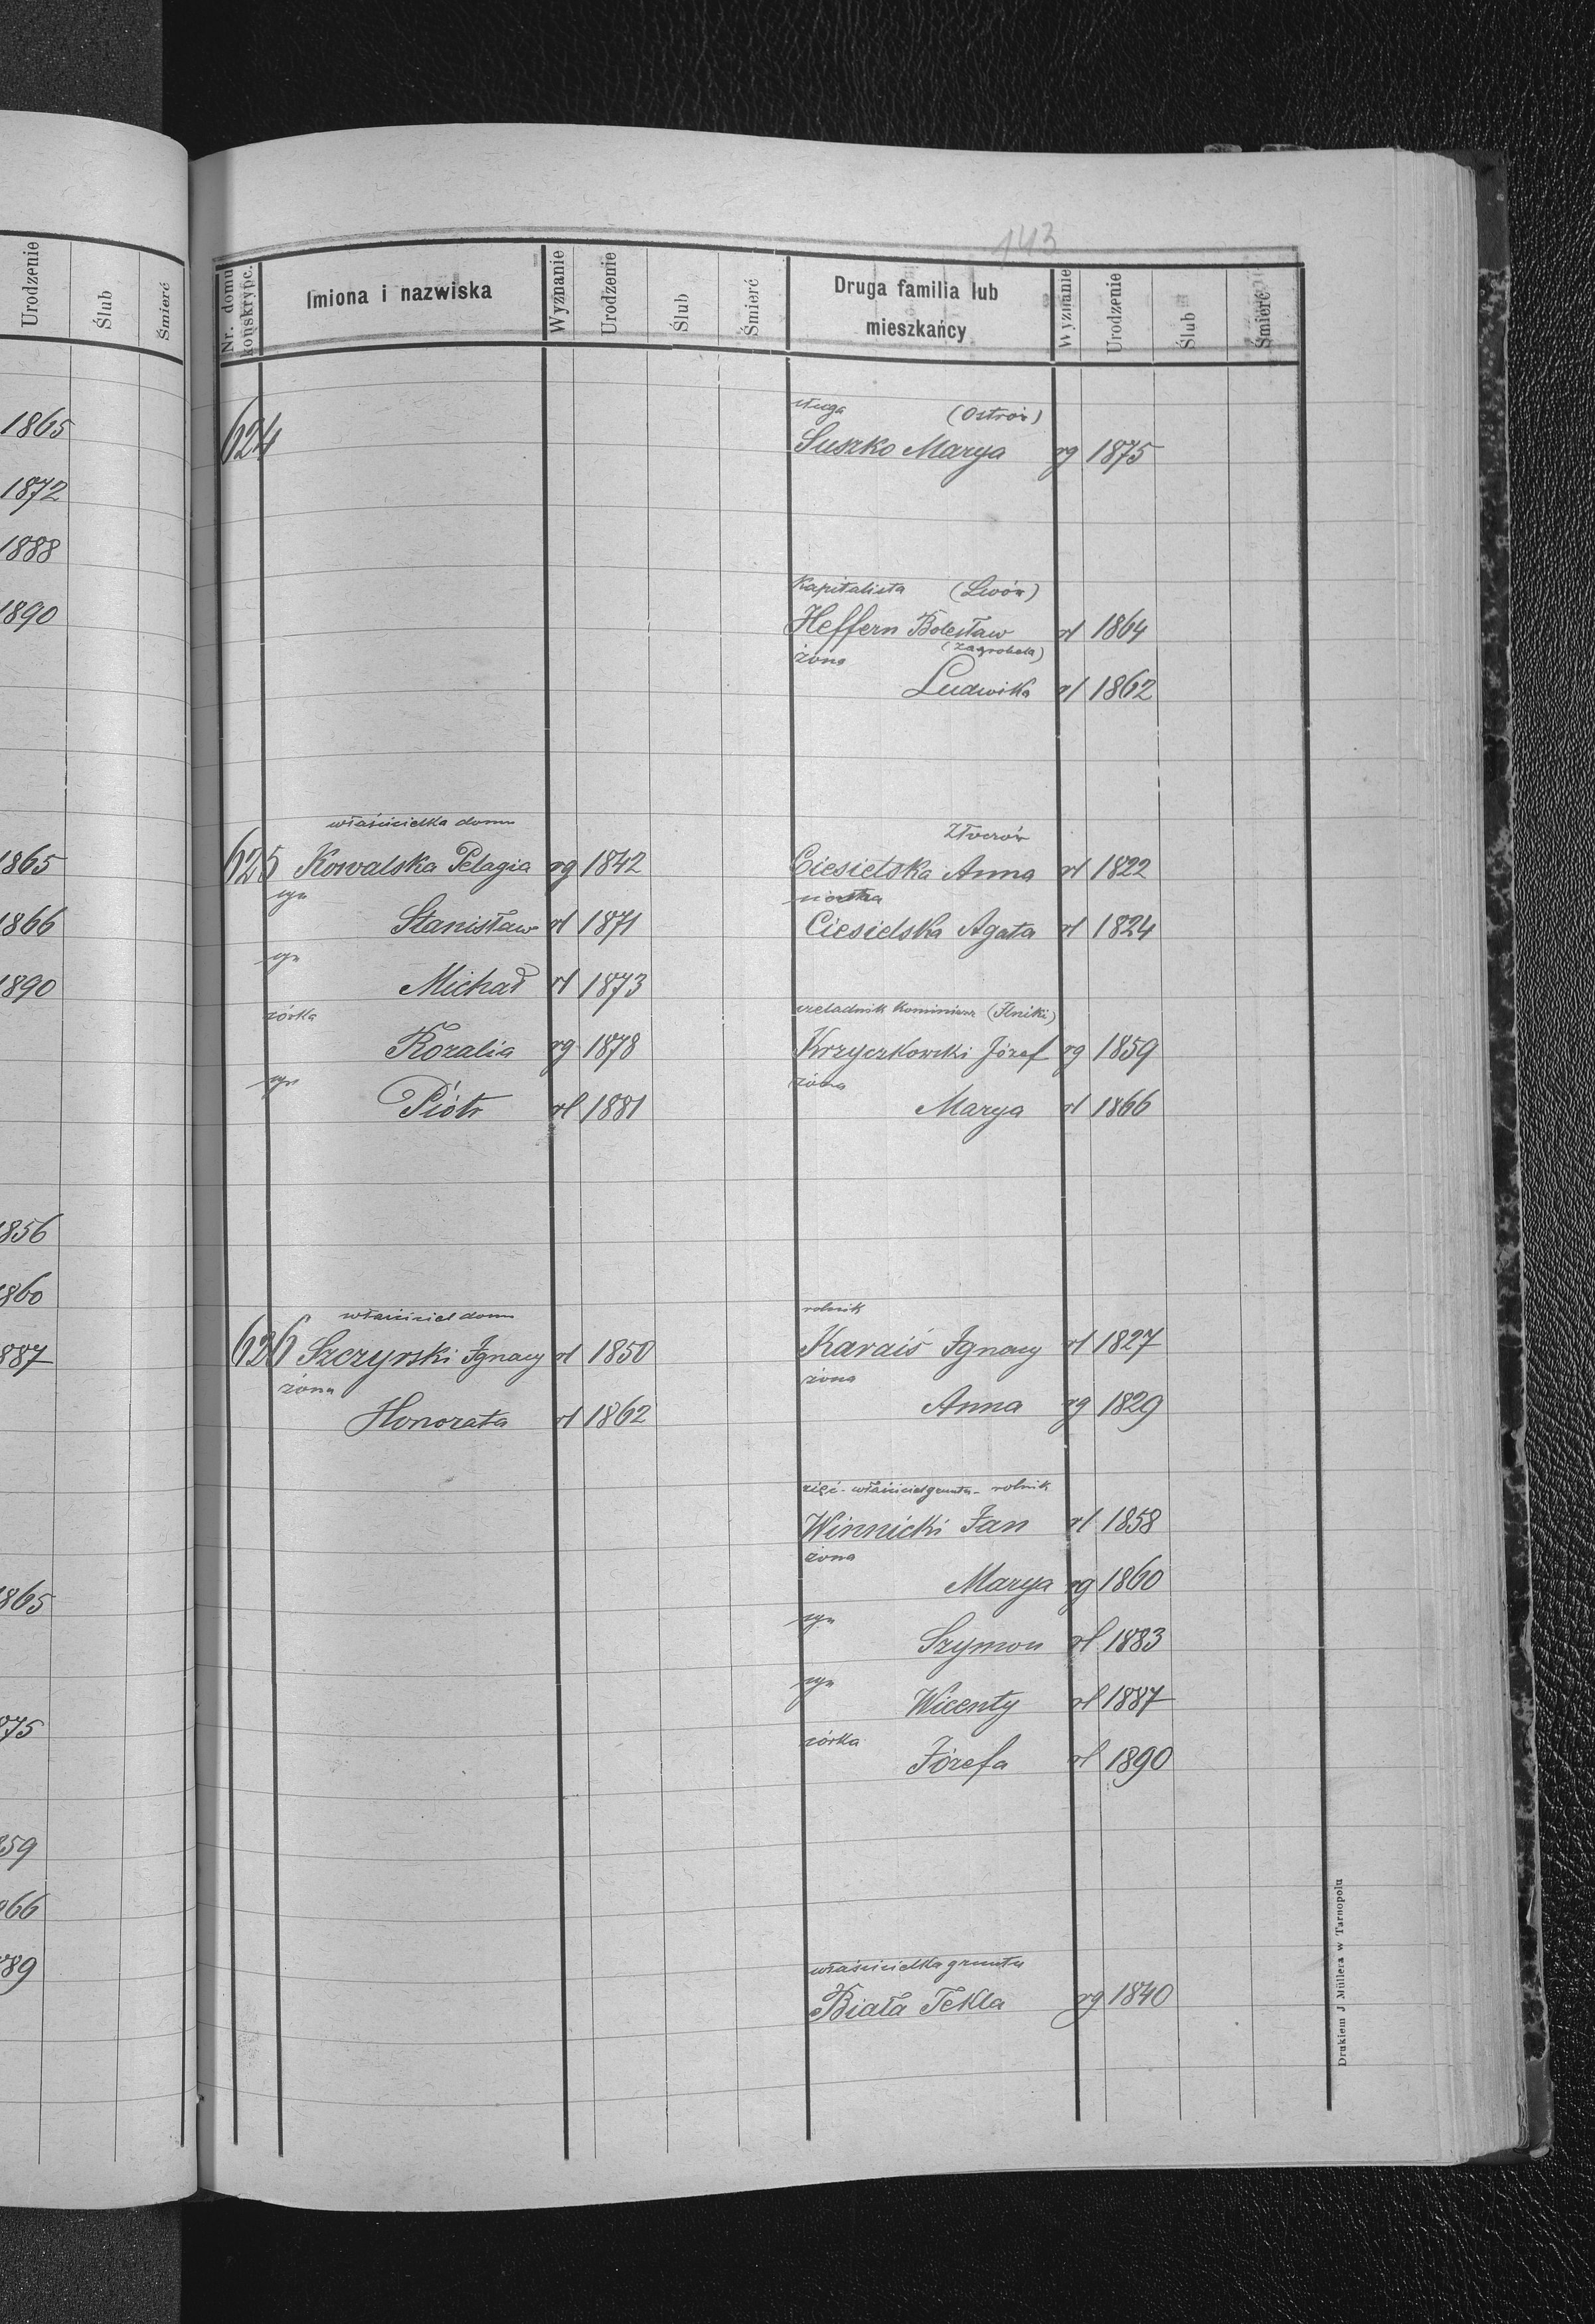 Urodzenie
Ślub
Śmierć
1865
1872
1888
1890
1865
1866
1890
1856
1860
887
865
875
859
66
89
143
Nr. domu konskrypc.
Imiona i nazwiska
Wyznanie
Urodzenie
Ślub
Śmierć
Druga familia lub mieszkańcy
Wyznanie
Urodzenie
Ślub
Śmierć
sługa (Ostrów)
624 Suszko Marya rg 1875
Kapitalista (Lwów)
Heffern Bolesław rl 1864
żona (Zagrobela)
Ludwika rl 1862
właścicielka domu
625 Kowalska Pelagia rg 1842
syn
Stanisław rl 1871
syn
Michał rl 1873
córka
Rozalia rg 1878
syn
Piótr rl 1881
Złoczów
Ciesielska Anna rl 1822
siostra
Ciesielska Agata rl 1824
czeladnik kominiarz (Ilniki)
Krzyczkowski Józef rg 1859
żona
Marya rl 1866
właściciel domu
626 Szczyrski Ignacy rl 1850
żona
Honorata rl 1862
rolnik
Karaiś Ignacy rl 1827
żona
Anna rg 1829
zięć - właściciel gruntu - rolnik
Winnicki Jan rl 1858
żona
Marya rg 1860
syn
Szymon rl 1883
syn
Wicenty rl 1887
córka
Józefa rl 1890
właścicielka gruntu
Biała Tekla rg 1840
Drukiem J Müllera w Tarnopolu